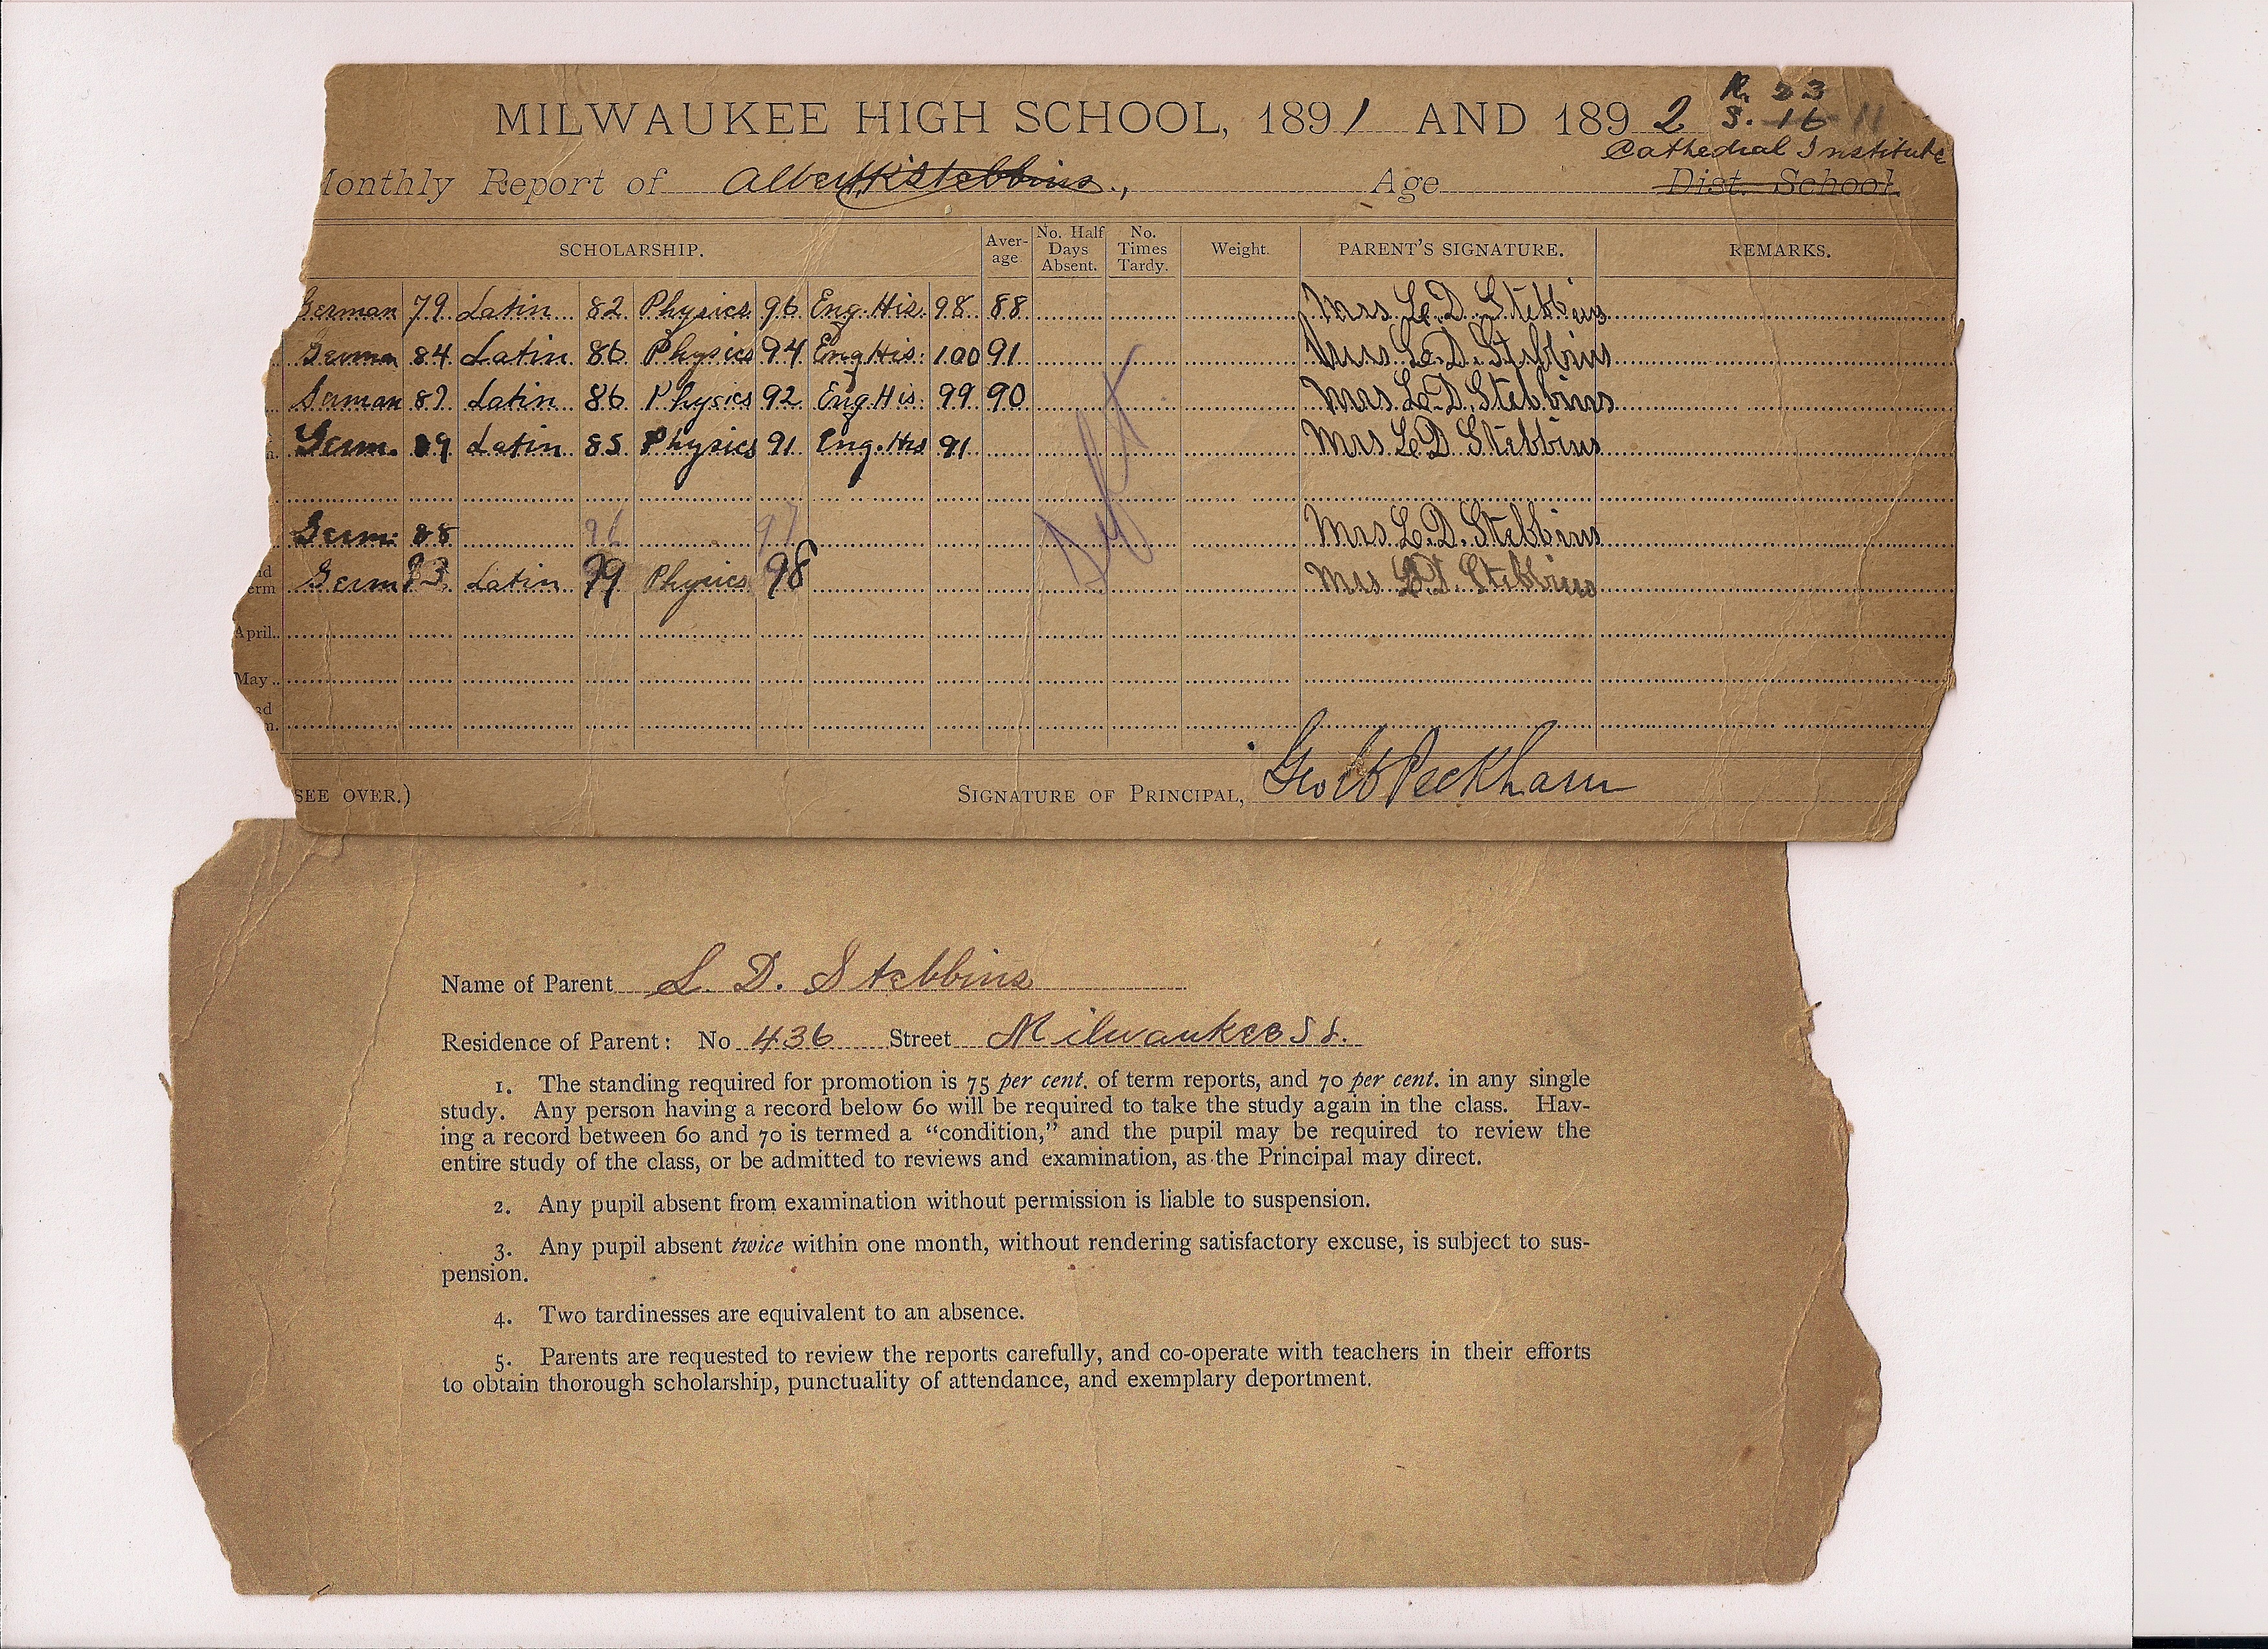 R. 23
MILWAUKEE HIGH SCHOOL, 1891 AND 1892 S. 16 11
Cathedral Institute
Monthly Report of Albert Stebbins, Age Dist. School.
SCHOLARSHIP. Average No. Half Days Absent. No. Times Tardy. Weight. PARENT'S SIGNATURE. REMARKS.
German 79 Latin 82 Physics 96 Eng. His. 98 88 Mrs L. D. Stebbins
German 84 Latin 86 Physics 94 Eng His. 100 91 Mrs L. D. Stebbins
German 87 Latin 86 Physics 92 Eng His. 99 90 Mrs L. D. Stebbins
Germ. 89 Latin 85 Physics 91 Eng. His 91 Mrs L D Stebbins
Germ. 88 96 97 Mrs L. D. Stebbins
Germ 83 Latin 99 Physics 98 Mrs L. D. Stebbins
Left
April..
May..
SEE OVER.) SIGNATURE OF PRINCIPAL, Geo W Peckham
Name of Parent L. D. Stebbins
Residence of Parent: No 436 Street Milwaukee St.
1. The standing required for promotion is 75 per cent. of term reports, and 70 per cent. in any single
study. Any person having a record below 60 will be required to take the study again in the class. Hav-
ing a record between 60 and 70 is termed a "condition," and the pupil may be required to review the
entire study of the class, or be admitted to reviews and examination, as the Principal may direct.
2. Any pupil absent from examination without permission is liable to suspension.
3. Any pupil absent twice within one month, without rendering satisfactory excuse, is subject to sus-
pension.
4. Two tardinesses are equivalent to an absence.
5. Parents are requested to review the reports carefully, and co-operate with teachers in their efforts
to obtain thorough scholarship, punctuality of attendance, and exemplary deportment.